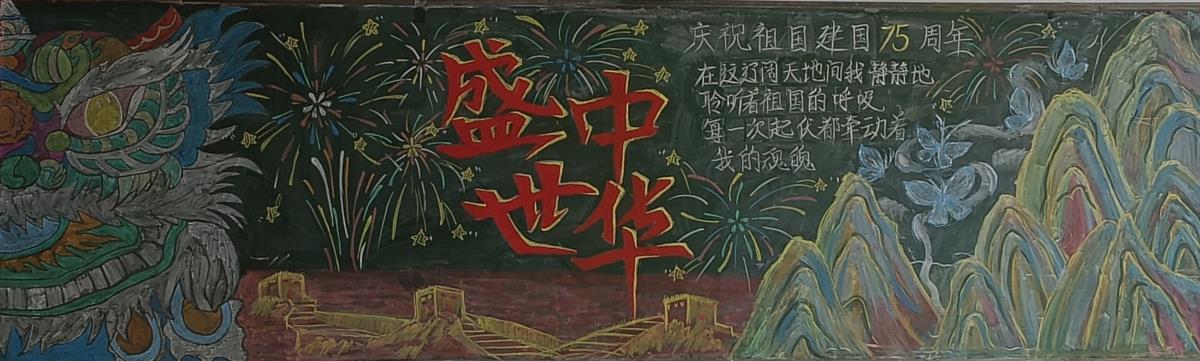 盛世
中华
庆祝祖国建国75周年
在这辽阔天地间我静静地
聆听着祖国的呼吸
每一次起伏都牵动着
我的魂魄